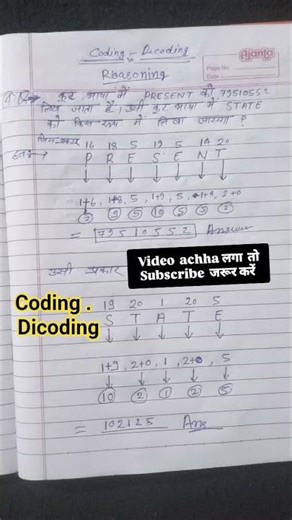 Coding - Dicoding
Reasoning
Ajanta
Page No.
Date
कूट भाषा में PRESENT को 79510552
लिखा जाता है। उसी कूट भाषा में STATE
को किस रूप में लिखा जाएगा ?
जिस प्रकार 16 18 5 19 5 14 20
हल:- P R E S E N T
1+6, 1+8, 5, 1+9, 5, 1+4, 2+0
7 9 5 10 5 5 2
= 79510552 Answer
Video achha लगा तो
Subscribe जरूर करें
उसी प्रकार
Coding .
Dicoding
19 20 1 20 5
S T A T E
1+9, 2+0, 1, 2+0, 5
10 2 1 2 5
= 102125 Ans